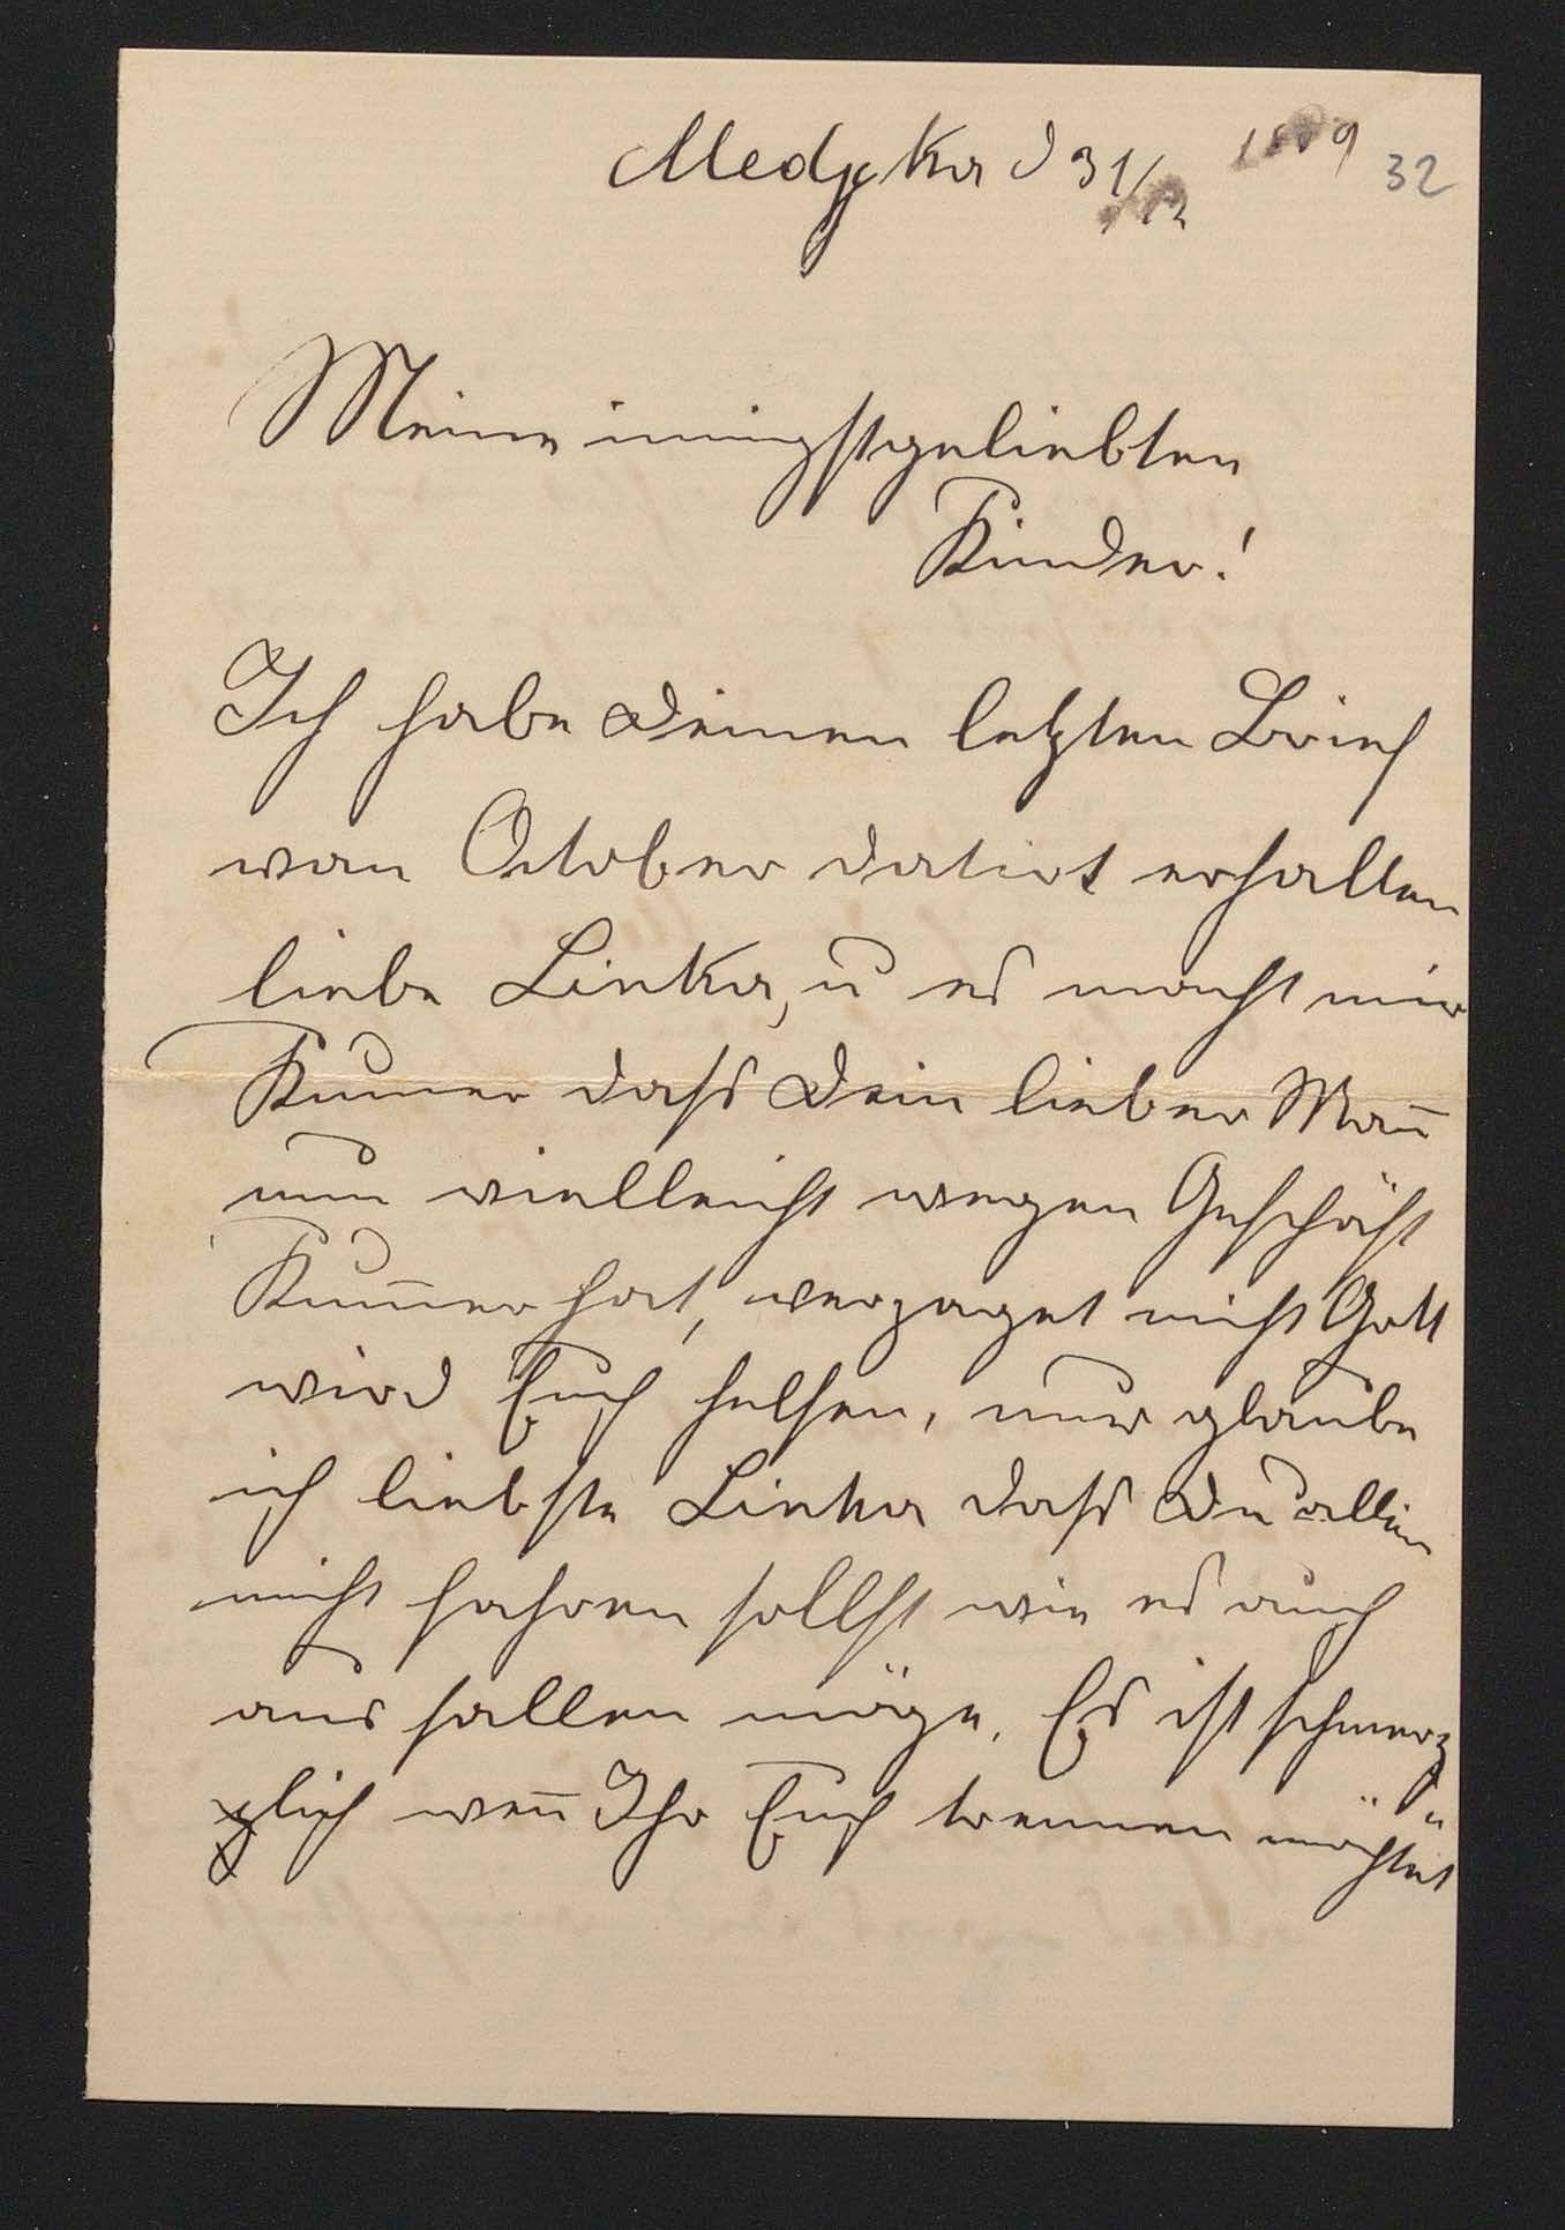 Medyka d 31/12 32
Meine innigstgeliebten
Kinder!
Ich habe Deinen letzten Brief
von October datirt erhalten
liebe Linka, u es macht mir
Kumer daß Dein lieber Man̄
nun vielleicht wegen Geschäft
Kum̄er hat, verzaget nicht Gott
wird Euch helfen, nur glaube
ich liebste Linka daß Du allein
nicht fahren sollst wie es auch
aus fallen möge. Es ist schmerz
zlich wen̄ Ihr Euch trennen möchtet